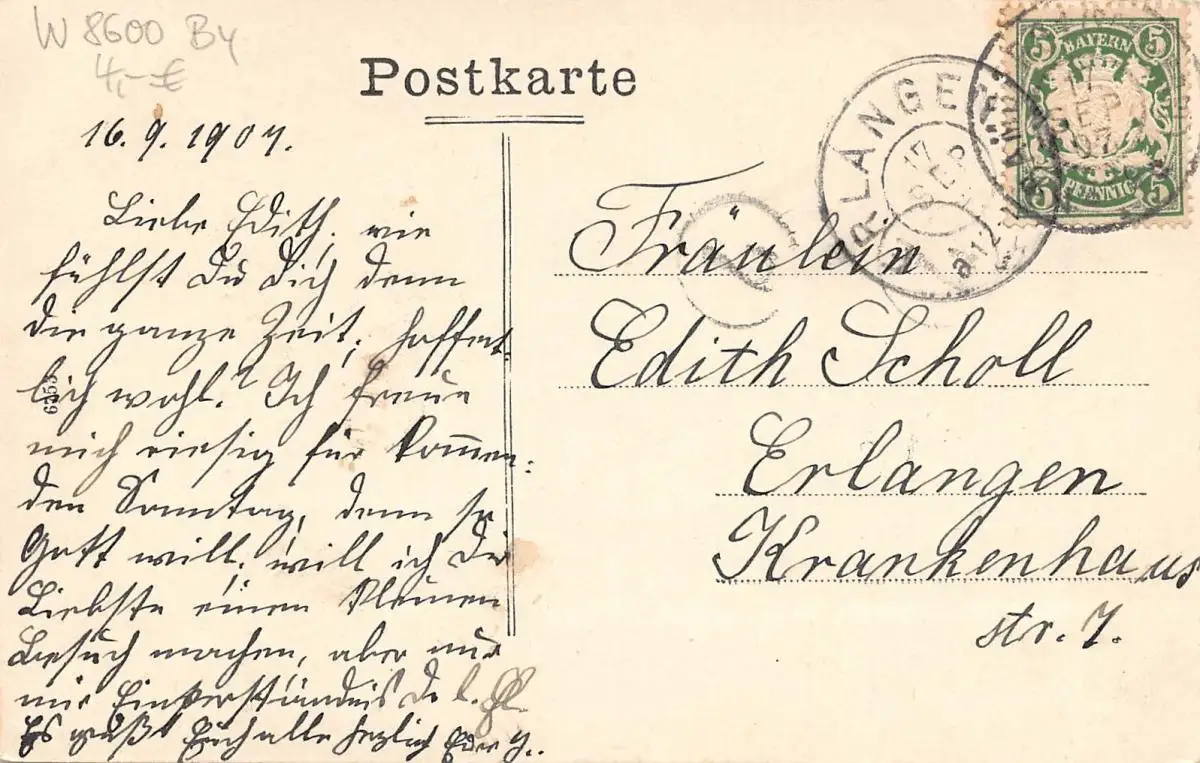 W 8600 By
4,- €
Postkarte
BAYERN
5 5
PFENNIG
5 5
ERLANGEN
17 SEP
16.9.1907.
Liebe Edith, wie
fühlst Du Dich denn
die ganze Zeit, hoffent-
lich wohl? Ich freue
mich riesig für kommen:
den Sonntag, denn so
Gott will, will ich Dir
Liebste einen kleinen
Besuch machen, aber nur
mit Einverständnis d. l.
Es grüßt Euch alle herzlich Euer
6353
Fräulein
Edith Scholl
Erlangen
Krankenhaus
str. 7.